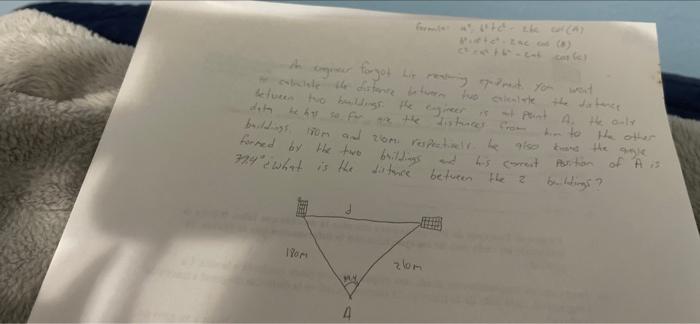 Formula: a² = b² + c² - 2bc cos(A)
b² = a² + c² - 2ac cos (B)
c² = a² + b² - 2ab cos(c)
An engineer forgot his measuring equipment. You want
to calculate the distance between two calculate the distance
between two buildings. the engineer is at Point A, the only
data he has so far are the distances from him to the other
buildings. 180m and 210m. respectively. he also knows the angle
formed by the two buildings and his current Position of A is
what is the distance between the 2 buildings?
d
180m
210m
A